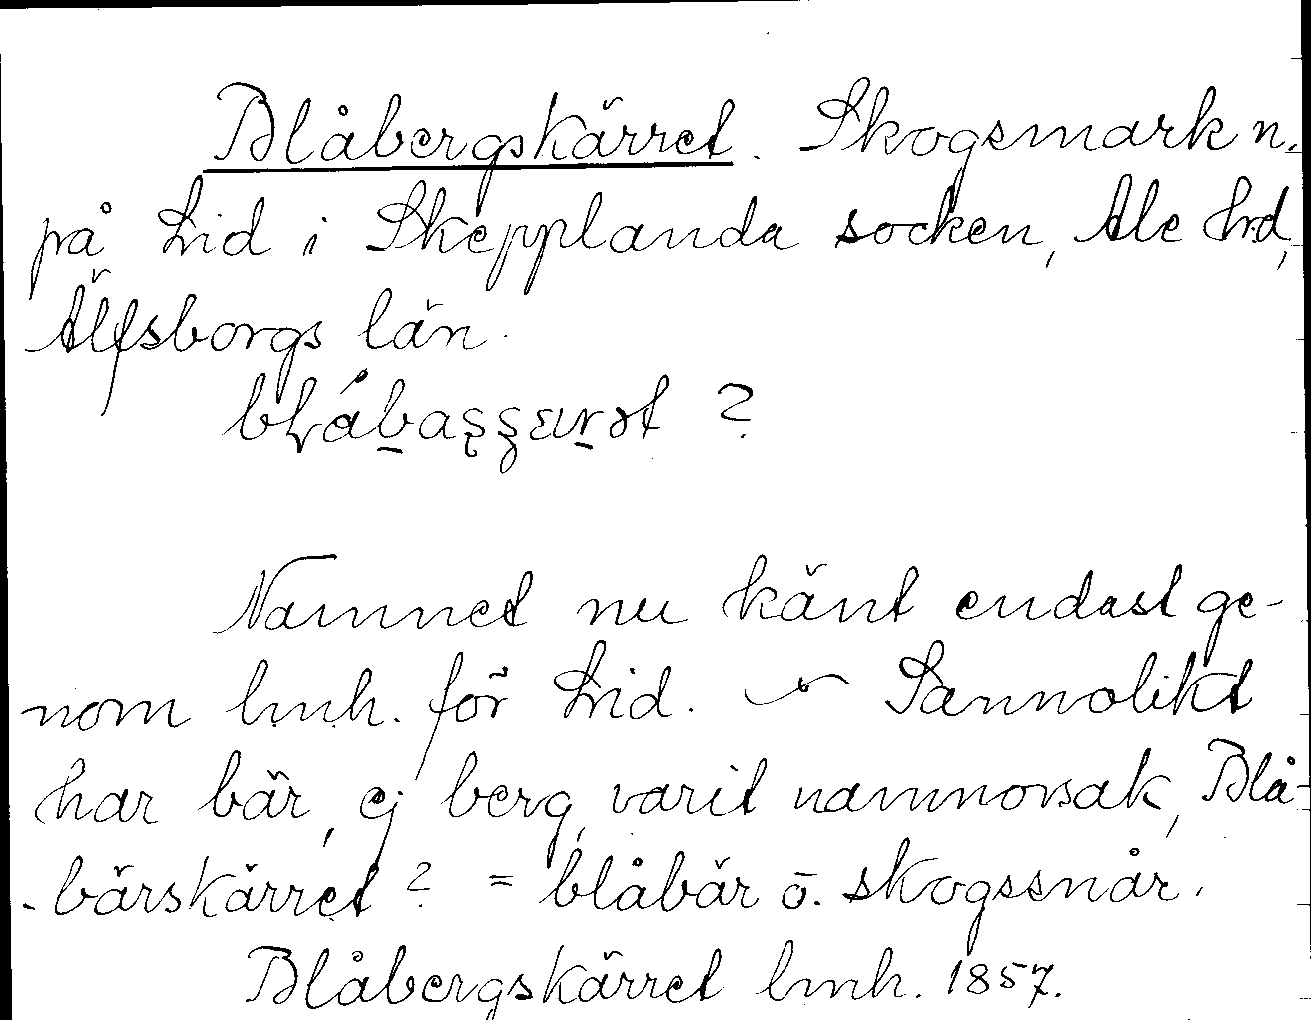 Blåbergskärret. Skogsmark n.
på Lid i Skepplanda socken, Ale hd,
Älfsborgs län.
?
Namnet nu känt endast ge-
nom lmh. för Lid. Sannolikt
har bär, ej berg, varit namnorsak, Blå-
-bärskärret? = blåbär o. skogssnår.
Blåbergskärret lmh. 1857.